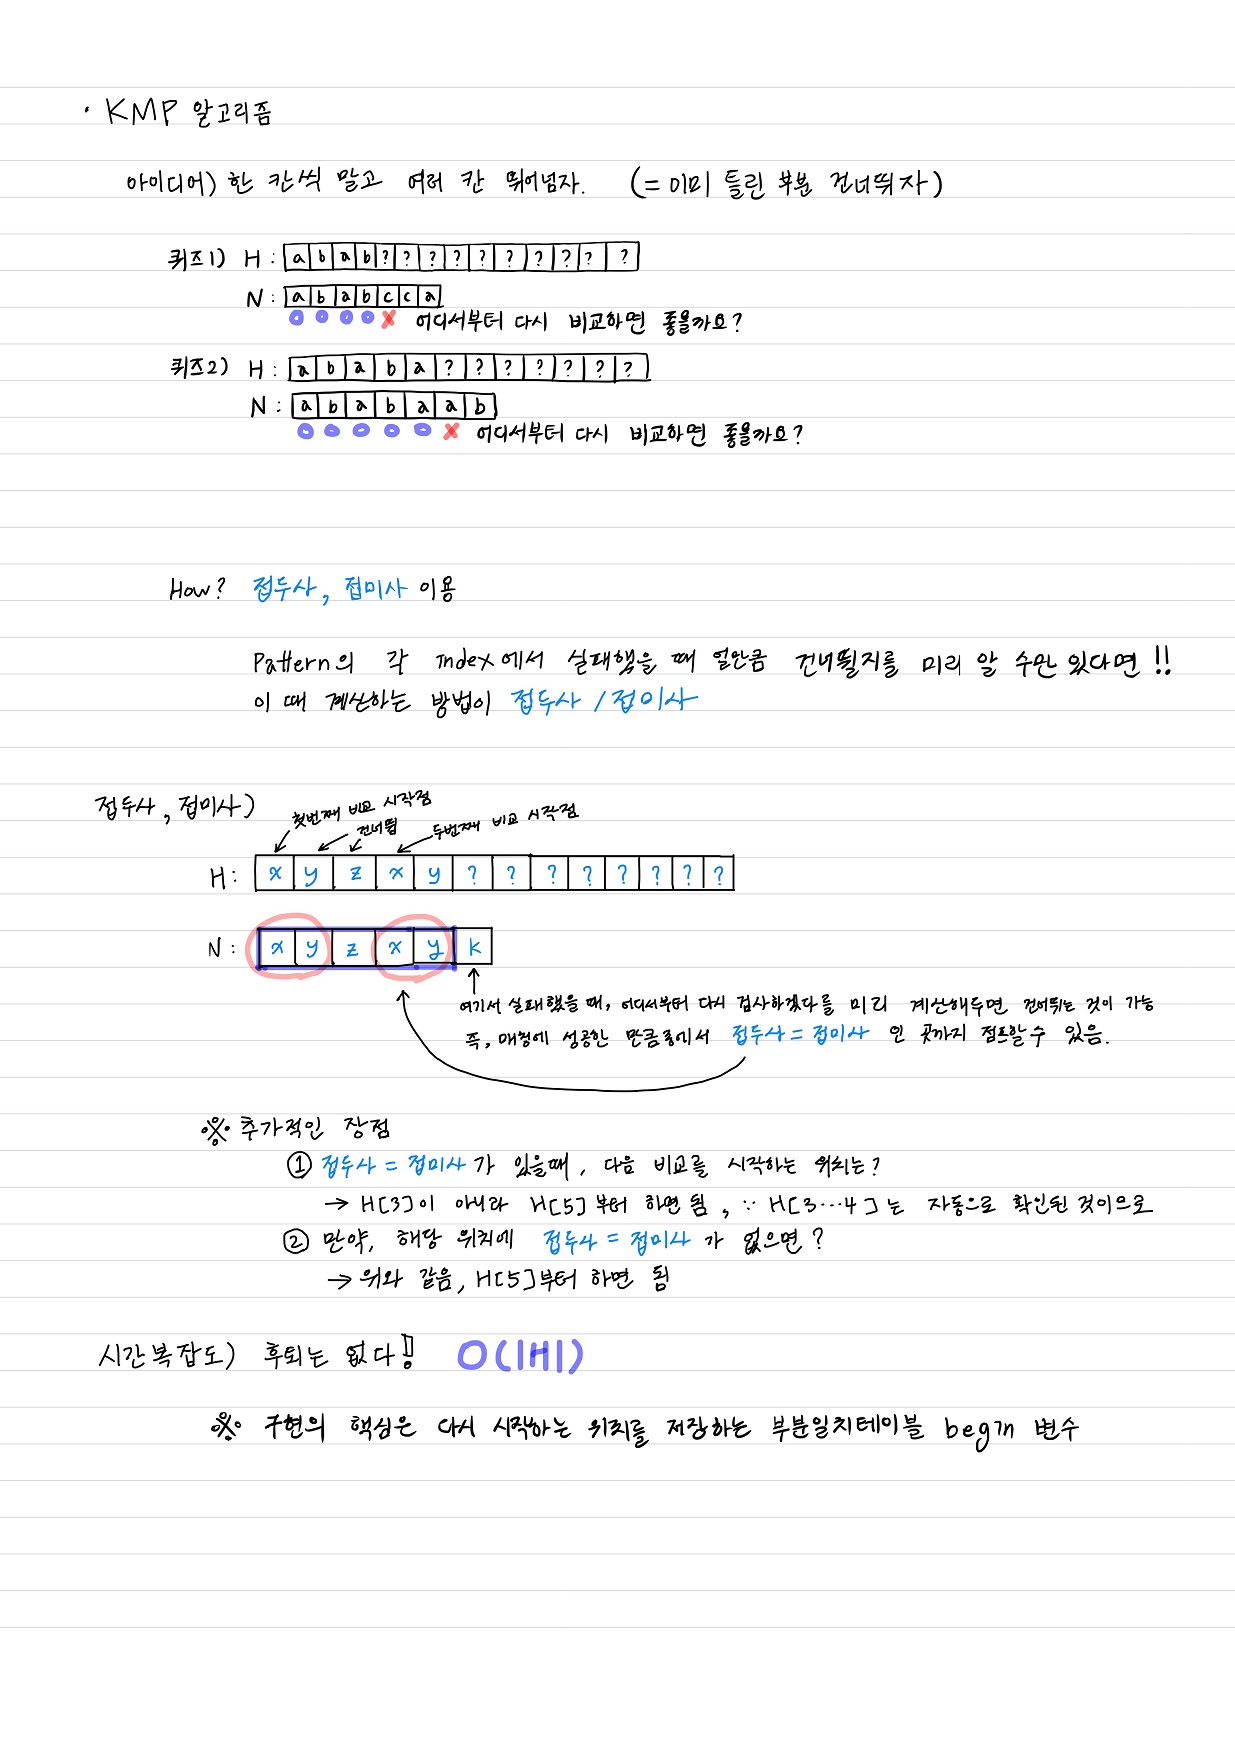 · KMP 알고리즘
아이디어) 한 칸씩 말고 여러 칸 뛰어넘자. (= 이미 틀린 부분 건너뛰자)
퀴즈1) H : a b a b ? ? ? ? ? ? ? ? ? ?
N : a b a b c c a
어디서부터 다시 비교하면 좋을까요?
퀴즈2) H : a b a b a ? ? ? ? ? ? ?
N : a b a b a a b
어디서부터 다시 비교하면 좋을까요?
How? 접두사, 접미사 이용
Pattern의 각 Index에서 실패했을 때 얼만큼 건너뛸지를 미리 알 수만 있다면 !!
이 때 계산하는 방법이 접두사 / 접미사
접두사, 접미사)
첫번째 비교 시작점
건너뜀
두번째 비교 시작점
H : x y z x y ? ? ? ? ? ? ? ?
N : x y z x y k
여기서 실패했을 때, 어디서부터 다시 검사하겠다를 미리 계산해두면 건너뛰는 것이 가능
즉, 매칭에 성공한 만큼중에서 접두사 = 접미사 인 곳까지 점프할 수 있음.
※ 추가적인 장점
① 접두사 = 접미사가 있을때, 다음 비교를 시작하는 위치는?
→ H[3]이 아니라 H[5]부터 하면 됨, ∵ H[3...4]는 자동으로 확인된 것이므로
② 만약, 해당 위치에 접두사 = 접미사 가 없으면?
→ 위와 같음, H[5]부터 하면 됨
시간복잡도) 후퇴는 없다!! O(|H|)
※ 구현의 핵심은 다시 시작하는 위치를 저장하는 부분일치테이블 begin 변수